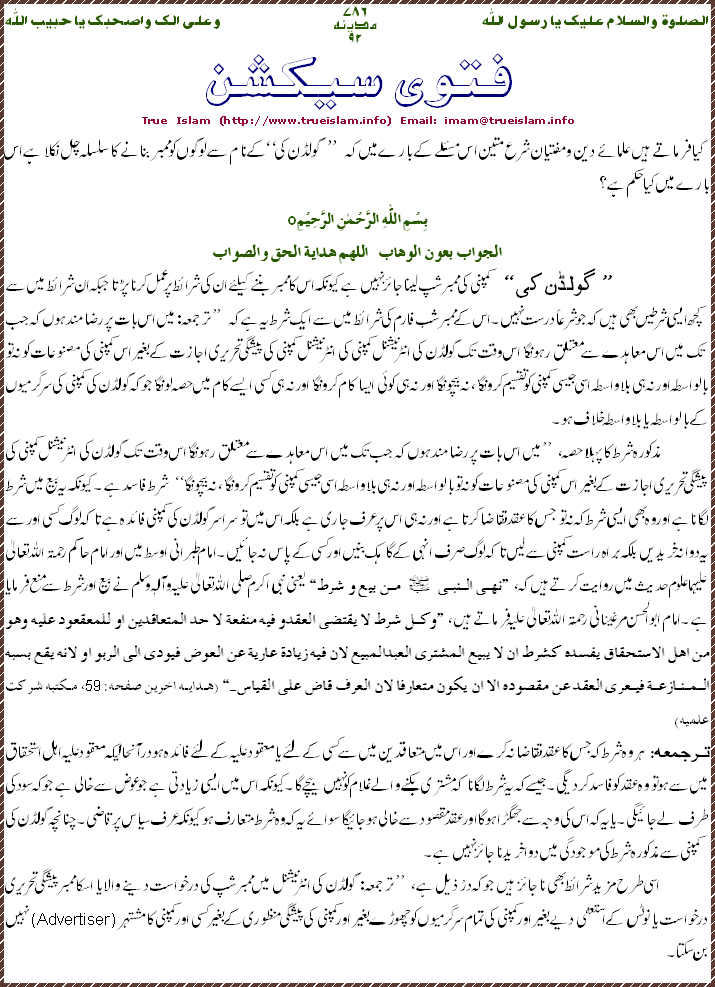 الصلوة والسلام علیک یا رسول الله
۷۸۶
مدینہ
۹۲
وعلی الک واصحبک یا حبیب الله
فتوی سیکشن
True Islam (http://www.trueislam.info) Email: imam@trueislam.info
کیا فرماتے ہیں علمائے دین و مفتیان شرع متین اس مسئلے کے بارے میں کہ ’’گولڈن کی‘‘ کے نام سے لوگوں کو ممبر بنانے کا سلسلہ چل نکلا ہے اس
بارے میں کیا حکم ہے؟
بِسْمِ اللهِ الرَّحْمٰنِ الرَّحِيْمِ٥
الجواب بعون الوهاب اللهم هداية الحق والصواب
’’گولڈن کی‘‘ کمپنی کی ممبر شپ لینا جائز نہیں ہے کیونکہ اس کا ممبر بننے کیلئے ان کی شرائط پر عمل کرنا پڑتا جبکہ ان شرائط میں سے
کچھ ایسی شرطیں بھی ہیں کہ جو شرعاً درست نہیں۔ اس کے ممبر شپ فارم کی شرائط میں سے ایک شرط یہ ہے کہ ’’ترجمعہ: میں اس بات پر رضا مند ہوں کہ جب
تک میں اس معاہدے سے متعلق رہونگا اس وقت تک گولڈن کی انٹرنیشنل کمپنی کی انٹرنیشنل کمپنی کی پیشگی تحریری اجازت کے بغیر اس کمپنی کی مصنوعات کو نہ تو
بالواسطہ اور نہ ہی بلا واسطہ اسی جیسی کمپنی کو تقسیم کرونگا، نہ بیچونگا اور نہ ہی کوئی ایسا کام کرونگا اور نہ ہی کسی ایسے کام میں حصہ لونگا جو کہ گولڈن کی کمپنی کی سرگرمیوں
کے بالواسطہ یا بلا واسطہ خلاف ہو۔
مذکورہ شرط کا پہلا حصہ، ’’میں اس بات پر رضا مند ہوں کہ جب تک میں اس معاہدے سے متعلق رہونگا اس وقت تک گولڈن کی انٹرنیشنل کمپنی کی
پیشگی تحریری اجازت کے بغیر اس کمپنی کی مصنوعات کو نہ تو بالواسطہ اور نہ ہی بلا واسطہ اسی جیسی کمپنی کو تقسیم کرونگا، نہ بیچونگا‘‘ شرط فاسد ہے۔ کیونکہ یہ بیع میں شرط
لگانا ہے اور وہ بھی ایسی شرط کہ نہ تو جس کا عقد تقاضا کرتا ہے اور نہ ہی اس پر عرف جاری ہے بلکہ اس میں تو سراسر گولڈن کی کمپنی فائدہ ہے تا کہ لوگ کسی اور سے
یہ دوا نہ خریدیں بلکہ براہ راست کمپنی سے لیں تا کہ لوگ صرف انہی کے گاہک بنیں اور کسی کے پاس نہ جائیں۔ امام طبرانی اوسط میں اور امام حاکم رحمۃ اللہ تعالیٰ
علیہما علوم حدیث میں روایت کرتے ہیں کہ، ”نهى النبى ﷺ من بيع و شرط“ یعنی نبی اکرم صلی اللہ تعالیٰ علیہ وآلہ وسلم نے بیع اور شرط سے منع فرمایا
ہے۔ امام ابوالحسن مرغینانی رحمۃ اللہ تعالیٰ علیہ فرماتے ہیں، ”وكل شرط لا يقتضى العقد و فيه منفعة لا حد المتعاقدين او للمعقود عليه وهو
من اهل الاستحقاق يفسده كشرط ان لا يبيع المشترى العبد المبيع لان فيه زيادة عارية عن العوض فيودى الى الربو او لانه يقع بسبه
المنازعة فيعرى العقد عن مقصوده الا ان يكون متعارفا لان العرف قاض على القياس۔“ (هدایه اخرین صفحه: 59، مكتبه شركت
علمیه)
ترجمعه: ہر وہ شرط کہ جس کا عقد تقاضا نہ کرے اور اس میں متعاقدین میں سے کسی کے لئے یا معقود علیہ کے لئے فائدہ ہو درآنحالیکہ معقود علیہ اہل استحقاق
میں سے ہو تو وہ عقد کو فاسد کر دیگی۔ جیسے کہ یہ شرط لگانا کہ مشتری بکنے والے غلام کو نہیں بیچے گا۔ کیونکہ اس میں ایسی زیادتی ہے جو عوض سے خالی ہے جو کہ سود کی
طرف لے جائیگی۔ یا یہ کہ اس کی وجہ سے جھگڑا ہوگا اور عقد مقصود سے خالی ہو جائیگا سوائے یہ کہ وہ شرط متعارف ہو کیونکہ عرف سیاس پر قاضی۔ چنانچہ گولڈن کی
کمپنی سے مذکورہ شرط کی موجودگی میں دوا خریدنا جائز نہیں ہے۔
اسی طرح مزید شرائط بھی نا جائز ہیں جو کہ درذیل ہے، ’’ترجمعہ: گولڈن کی انٹرنیشنل میں ممبر شپ کی درخواست دینے والا یا اسکا ممبر پیشگی تحریری
درخواست یا نوٹس کے استعفیٰ دیے بغیر اور کمپنی کی تمام سرگرمیوں کو چھوڑے بغیر اور کمپنی کی پیشگی منظوری کے بغیر کسی اور کمپنی کا مشتہر (Advertiser) نہیں
بن سکتا۔